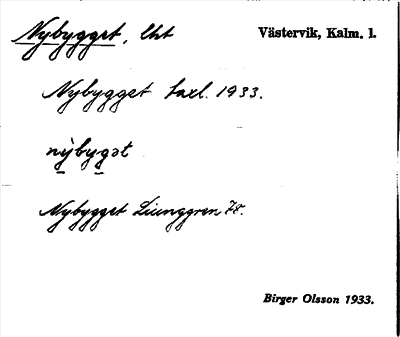 Nybygget, lht Västervik, Kalm. l.
Nybygget taxl. 1933.
nỳbygət
Nybygget Ljunggren 78.
Birger Olsson 1933.